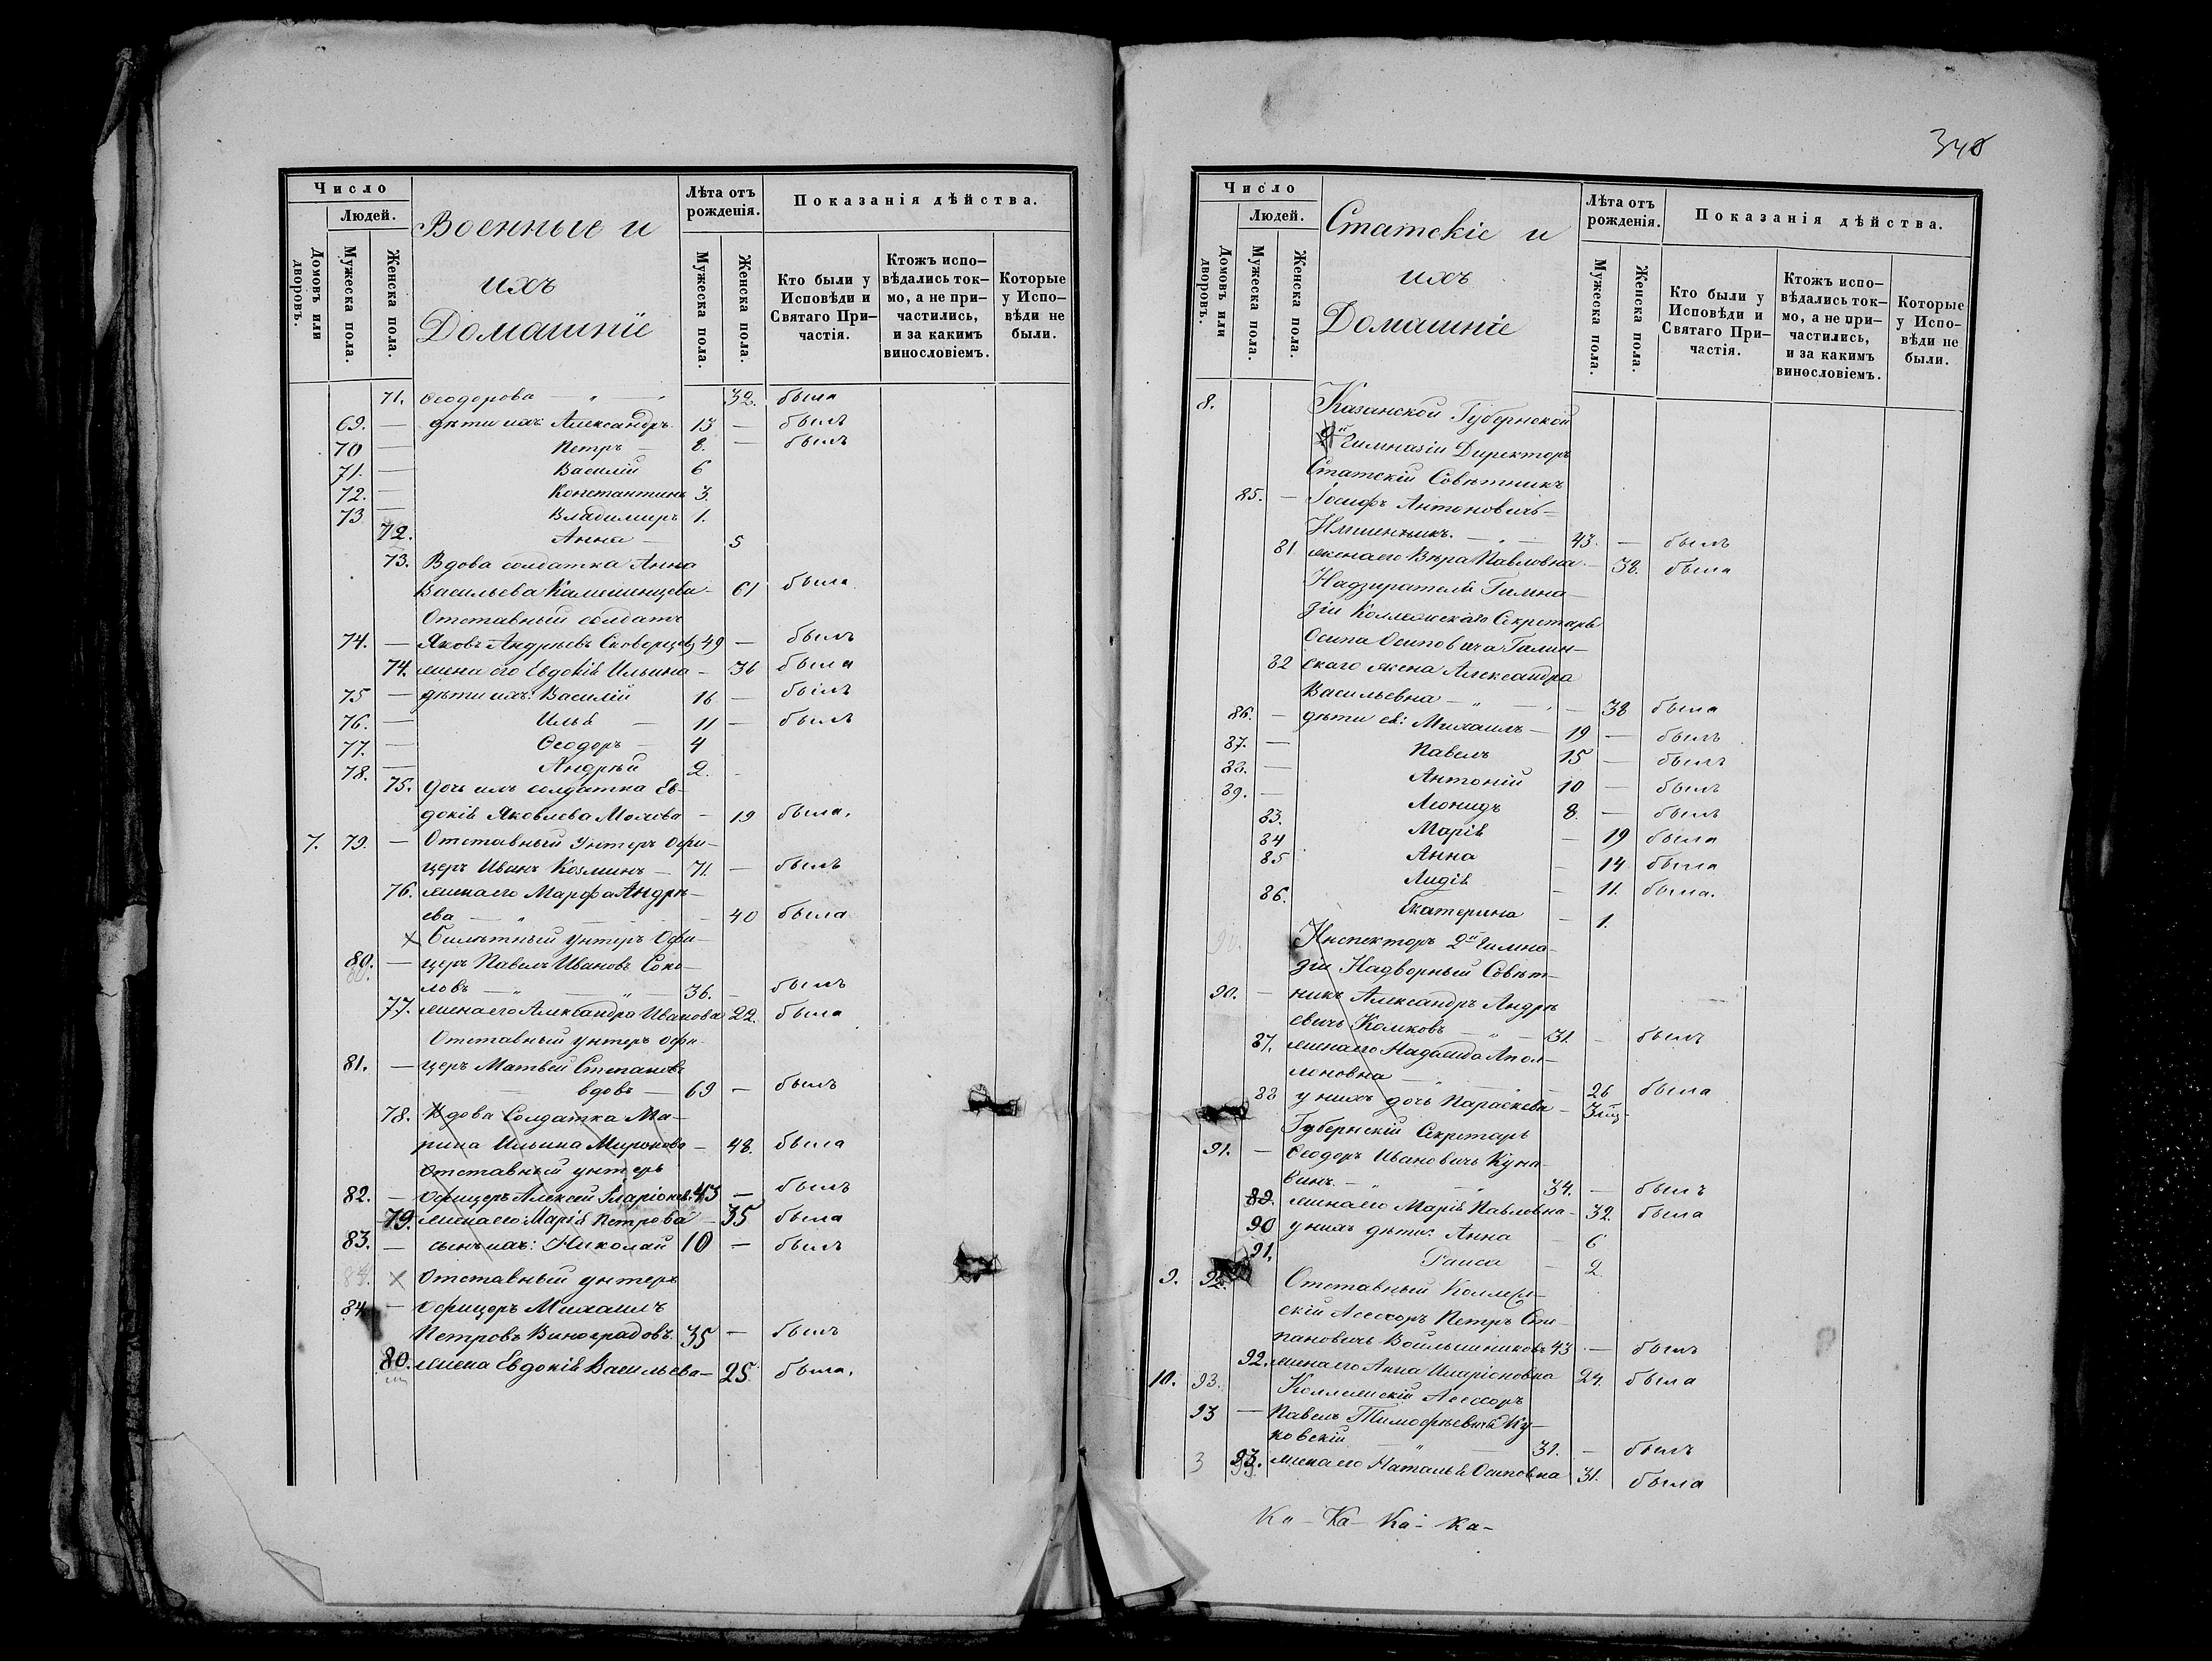 Число
Людей.
Домовъ или дворовъ.
Мужеска пола.
Женска пола.
Военные и
ихъ
Домашніе
Лѣта отъ рожденія.
Мужеска пола.
Женска пола.
Показанія дѣйства.
Кто были у Исповѣди и Святаго При-частія.
Ктожъ испо-вѣдались ток-мо, а не при-частились, и за какимъ винословіемъ.
Которые у Испо-вѣди не были.
71. Ѳеодорова — " — 32. была
69. — дѣти ихъ: Александръ 13 — былъ
70 — Петръ — 8. — былъ
71. — Василій 6
72. — Константинъ 3.
73 — Владимиръ 1.
72. Анна — 5
73. Вдова солдатка Анна
Васильева — 61 была
Отставный солдатъ
74. — Яковъ Андреевъ 49 — былъ
74. жена его Евдокія Ильина — 36 была
75 — дѣти ихъ: Василій 16 — былъ
76. — Илья — 11 — былъ
77. — Ѳеодоръ — 4
78. — Андрей 2.
75. дочь ихъ солдатка Ев-
докія Яковлева — 19 была.
7. 79. — Отставный Унтеръ Офи-
церъ Иванъ Козминъ — 71. — былъ
76. жена его Марфа Андре-
ева — " — 40 была
Билетный унтеръ Офи-
80. — церъ Павелъ Ивановъ Соко-
ловъ — " — " — 36. — былъ
77. жена его Александра Иванова 22. была
Отставный унтеръ офи-
81. — церъ Матвей Степановъ
вдовъ — 69 — былъ
78. Вдова Солдатка Ма-
рина Ильина Миронова — 48. была
Отставный унтеръ
82. — Офицеръ Алексей Иларіоновъ 43 — былъ
79. жена его: Марія Петрова — 35 была
83. — сынъ ихъ: Николай 10 — былъ
Отставный унтеръ
84. — Офицеръ Михаилъ
Петровъ Виноградовъ 35 — былъ
80. жена Евдокія Васильева — 25 была.
Число
Людей.
Домовъ или дворовъ.
Мужеска пола.
Женска пола.
Статскіе и
ихъ
Домашніе
Лѣта отъ рожденія.
Мужеска пола.
Женска пола.
Показанія дѣйства.
Кто были у Исповѣди и Святаго При-частія.
Ктожъ испо-вѣдались ток-мо, а не при-частились, и за какимъ винословіемъ.
Которые у Испо-вѣди не были.
8. Казанской Губернской
2й Гимназіи Директоръ
Статскій Совѣтникъ
85. — Іосифъ Антоновичъ
43. — былъ
81 жена его Вѣра Павловна — 38. была
Надзирателя Гимна-
зіи Коллежскаго Секретаря
Осипа Осиповича Галин-
82 скаго жена Александра
Васильевна — " — 38 была
86. — дѣти ея: Михаилъ — 19 — былъ
87. — Павелъ 15 — былъ
88. — Антоній 10 — былъ
89. — Леонидъ 8. — былъ
83. Марія — 19 была
84 Анна — 14 была
85 Лидія — 11. была.
86. Екатерина — 1.
Инспекторъ 2й Гимна-
зіи Надворный Совѣт-
90. — никъ Александръ Андре
евичъ Комковъ — " — 31. — былъ
87. жена его Надежда Апол-
лоновна — 26 была
88 у нихъ дочь Параскева — 3 мц.
Губернскій Секретарь
91. — Ѳеодоръ Ивановичъ Куна-
винъ — " — 34. — былъ
89. жена его Марія Павловна — 32. была
90 у нихъ дѣти: Анна — 6
91. Раиса — 2
9. 92. Отставный Коллеж-
скій Асессоръ Петръ Сте-
пановичъ 43 — былъ
92. жена его Анна Иларіоновна 24. была
10. 93. Коллежскій Асессоръ
93 — Павелъ Тимофеевичъ
31. — былъ
93. жена его Наталья Осиповна 31. была
Ка- Ка- Ка- Ка-